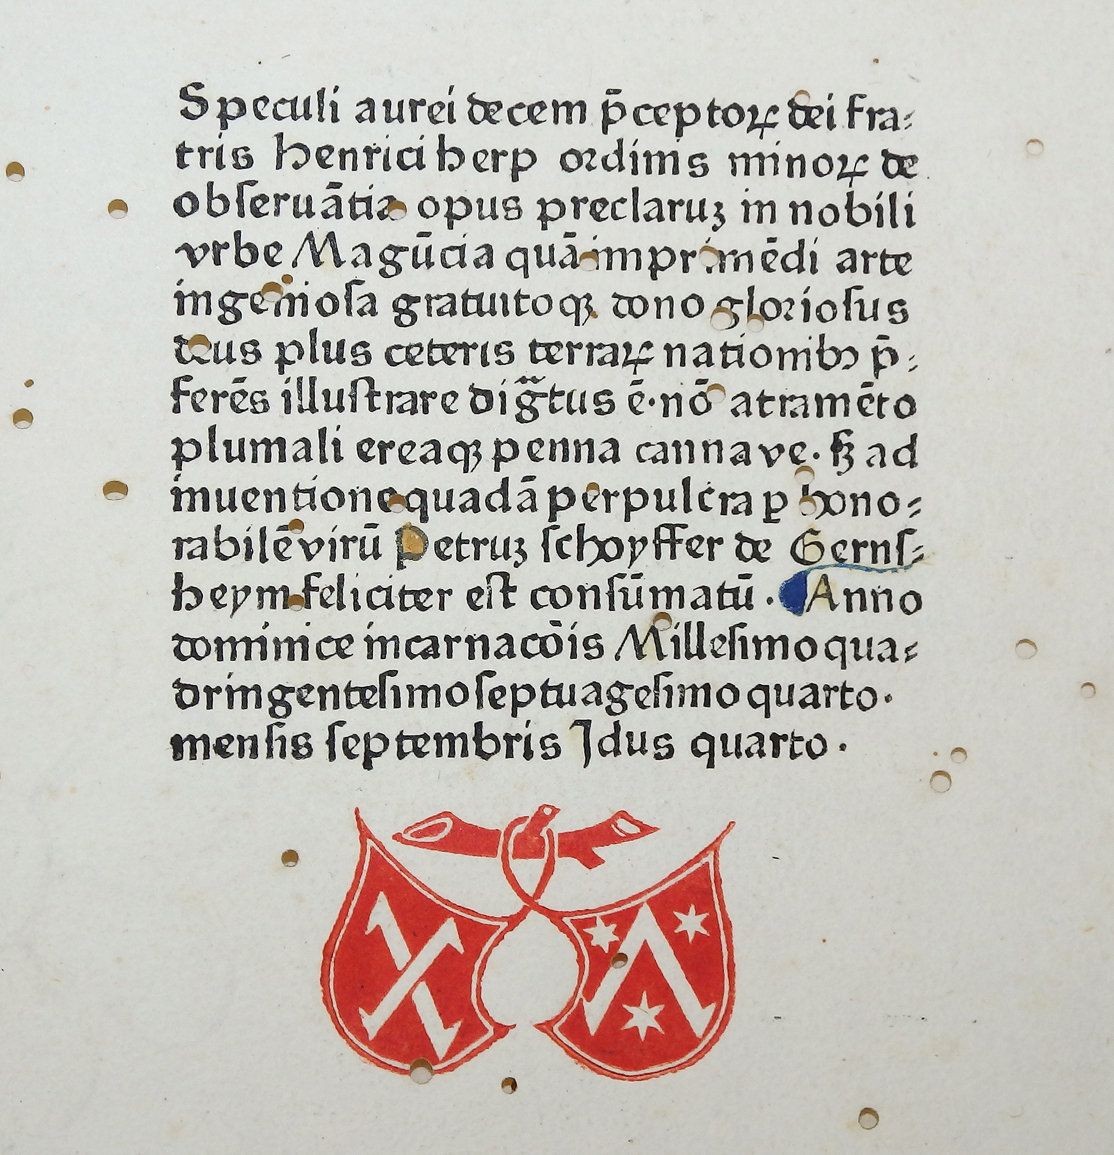 Speculi aurei decem p̄ceptoꝝ dei fra⸗
tris henrici herp ordinis minoꝝ de
obſeruātia opus preclaruꝫ in nobili
vrbe Magūcia quā imprimēdi arte
ingenioſa gratuitoqꝫ dono glorioſus
deus plus ceteris terraꝝ nationibꝰ p̄⸗
ferēs illuſtrare dig̃tus ē·nō atramēto
plumali ereaqꝫ penna cannave· ſꝫ ad
inuentione quadā perpulcra ꝑ hono⸗
rabilē virū Petruꝫ ſchoyffer de Gernſ⸗
heym feliciter eſt conſūmatū · Anno
dominice incarnacōis Milleſimo qua⸗
dringenteſimo ſeptuageſimo quarto·
menſis ſeptembris Jdus quarto ·